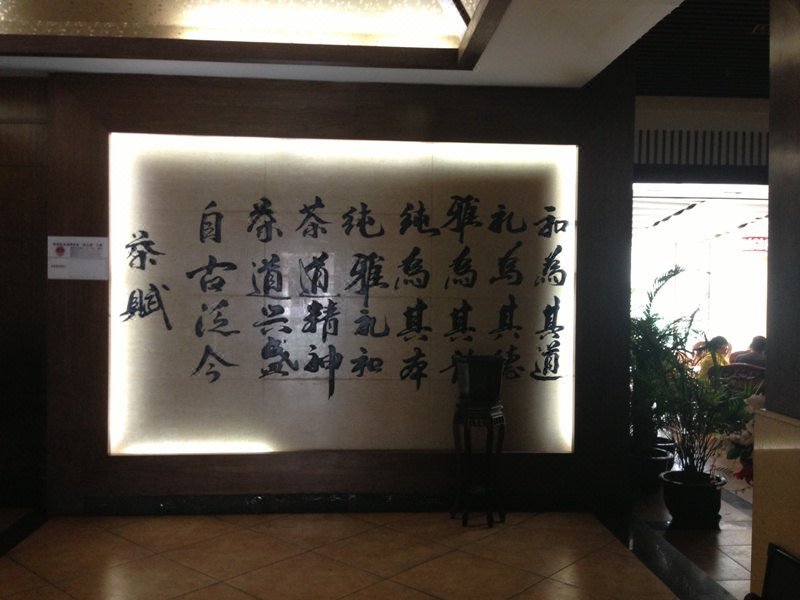 茶赋
自古泛今
茶道兴盛
茶道精神
纯雅礼和
纯為其本
雅為其韵
礼為其德
和為其道